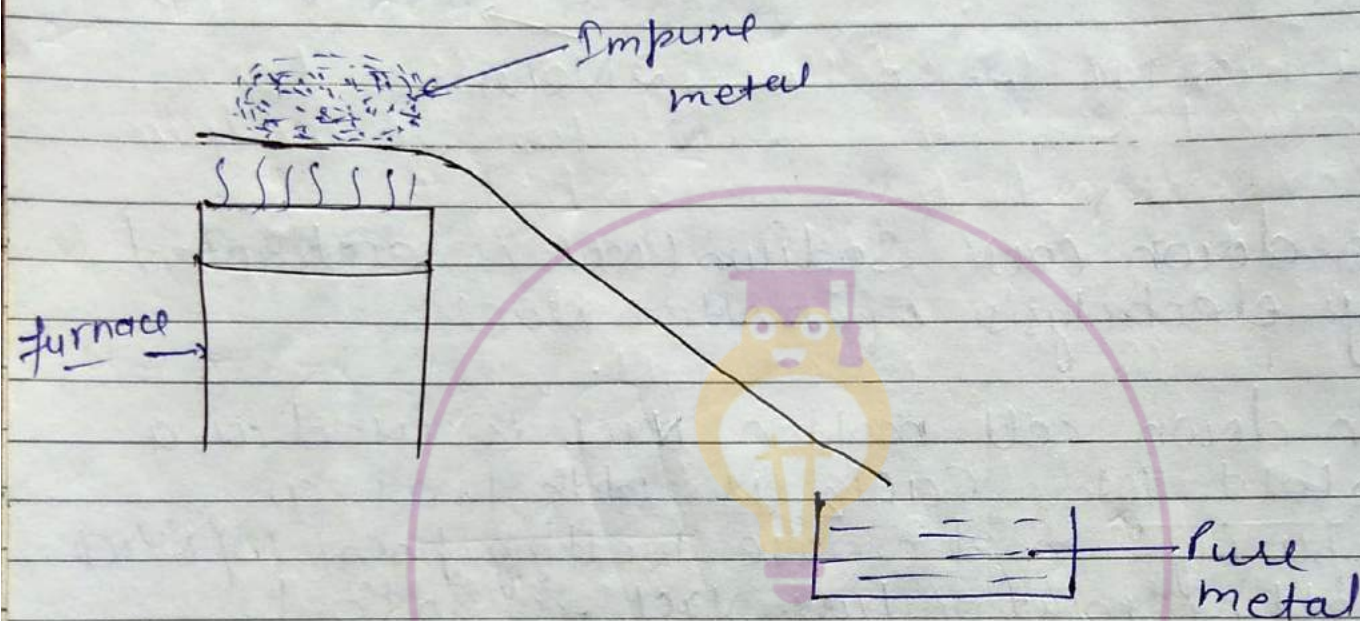 Impure
metal
furnace
Pure
metal